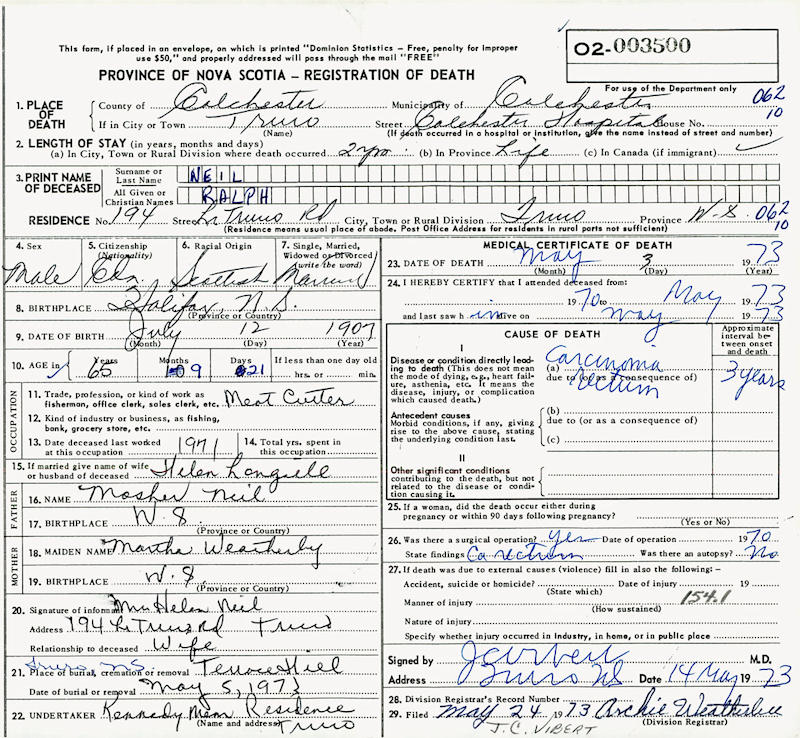 This form, if placed in an envelope, on which is printed "Dominion Statistics – Free, penalty for improper
use $50," and properly addressed will pass through the mail "FREE"
O2-003500
PROVINCE OF NOVA SCOTIA – REGISTRATION OF DEATH
For use of the Department only
1. PLACE OF DEATH County of Colchester Municipality of Colchester 062
If in City or Town Truro (Name) Street Colchester Hospital House No. 10
(If death occurred in a hospital or institution, give the name instead of street and number)
2. LENGTH OF STAY (in years, months and days)
(a) In City, Town or Rural Division where death occurred 2 yrs. (b) In Province Life (c) In Canada (if immigrant)
3. PRINT NAME OF DECEASED Surname or Last Name NEIL
All Given or Christian Names RALPH
RESIDENCE No. 194 Street Lr Truro Rd City, Town or Rural Division Truro Province N.S. 062
(Residence means usual place of abode. Post Office Address for residents in rural parts not sufficient) 10
4. Sex Male
5. Citizenship (Nationality) Cdn
6. Racial Origin Scottish
7. Single, Married, Widowed or Divorced (write the word) Married
8. BIRTHPLACE Halifax, N.S.
(Province or Country)
9. DATE OF BIRTH July 12 1907
(Month) (Day) (Year)
10. AGE in Years 65 Months 09 Days 21 If less than one day old
hrs. or min.
OCCUPATION
11. Trade, profession, or kind of work as
fisherman, office clerk, sales clerk, etc. Meat Cutter
12. Kind of industry or business, as fishing,
bank, grocery store, etc.
13. Date deceased last worked
at this occupation 1971
14. Total yrs. spent in
this occupation
15. If married give name of wife
or husband of deceased Helen Langille
FATHER
16. NAME Mosher Neil
17. BIRTHPLACE N.S.
(Province or Country)
MOTHER
18. MAIDEN NAME Martha Weatherby
19. BIRTHPLACE N.S.
(Province or Country)
20. Signature of informant Mrs Helen Neil
Address 194 Lr Truro Rd Truro
Relationship to deceased Wife
Truro, N.S.
21. Place of burial, cremation or removal Terrace Hill
Date of burial or removal May 5, 1973
22. UNDERTAKER Kennedy Mem Residence
(Name and address) Truro
MEDICAL CERTIFICATE OF DEATH
23. DATE OF DEATH May 3 1973
(Month) (Day) (Year)
24. I HEREBY CERTIFY that I attended deceased from:
1970 to May 1973
and last saw him alive on May 1973
CAUSE OF DEATH
Approximate interval between onset and death
I
Disease or condition directly leading to death (This does not mean the mode of dying, e.g., heart failure, asthenia, etc. It means the disease, injury, or complication which caused death.)
(a) Carcinoma
due to (or as a consequence of) rectum
3 years
Antecedent causes
Morbid conditions, if any, giving rise to the above cause, stating the underlying condition last.
(b)
due to (or as a consequence of)
(c)
II
Other significant conditions
contributing to the death, but not related to the disease or condition causing it.
25. If a woman, did the death occur either during
pregnancy or within 90 days following pregnancy?
(Yes or No)
26. Was there a surgical operation? Yes Date of operation 1970
State findings Ca rectum Was there an autopsy? No
27. If death was due to external causes (violence) fill in also the following:–
Accident, suicide or homicide? Date of injury 19
(State which)
Manner of injury 154.1
(How sustained)
Nature of injury
Specify whether injury occurred in industry, in home, or in public place
Signed by M.D.
Address Truro NS Date 14 May 1973
28. Division Registrar's Record Number
29. Filed May 24 1973 Archie Weatherbee
(Division Registrar)
J.C. VIBERT